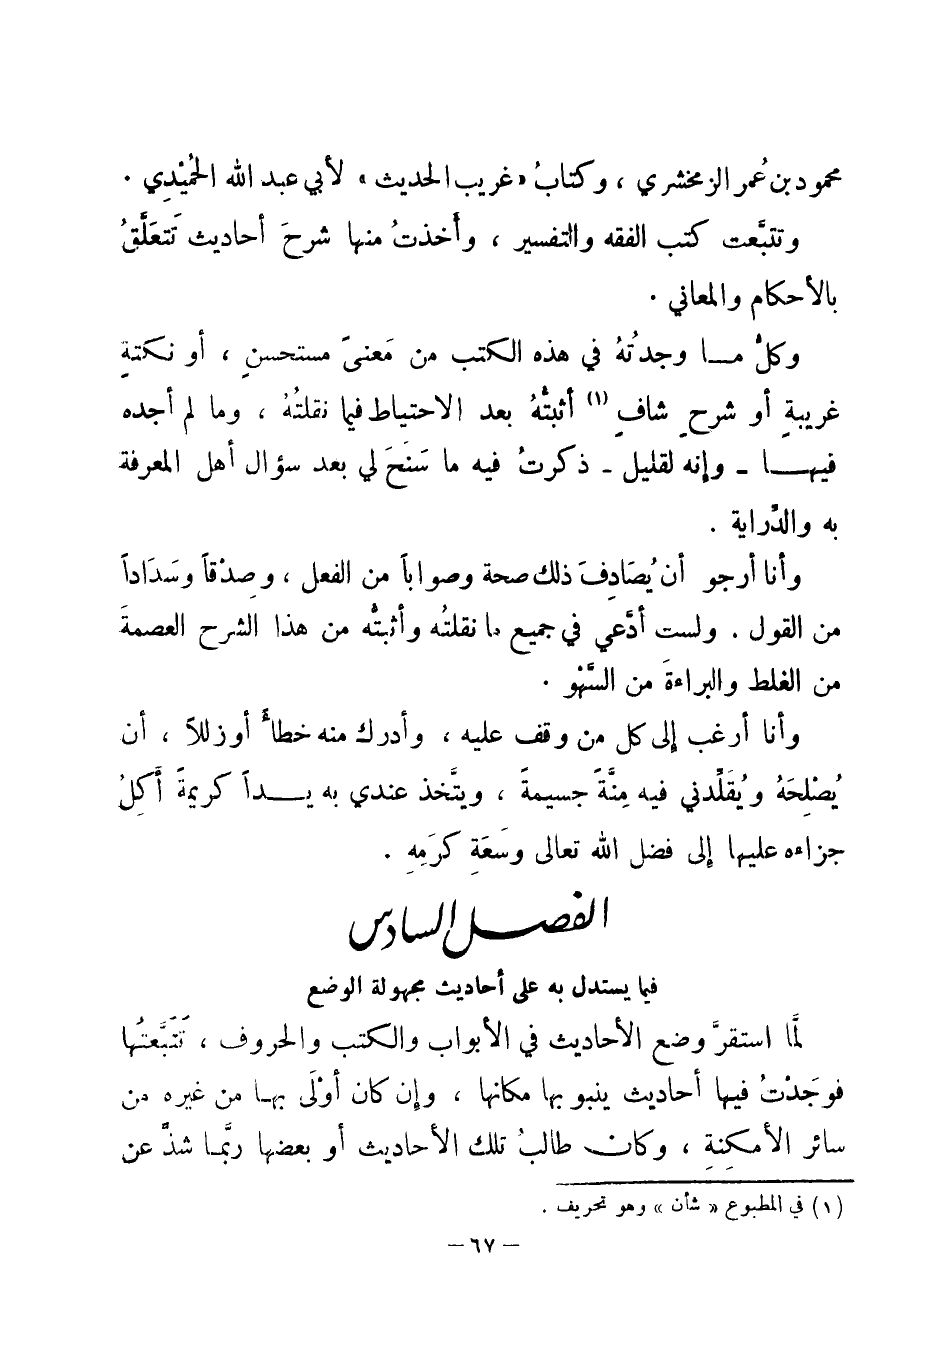 محمود بن عُمر الزمخشري ، وكتابُ « غريب الحديث » لأبي عبد الله الحُمَيْدِي .
وتتبَّعت كتب الفقه والتفسير ، وأخذتُ منها شرحَ أحاديث تَتعَلَّقُ
بالأحكام والمعاني .
وكلُّ مـــا وجدتُهُ في هذه الكتب من مَعنىً مستحسنٍ ، أو نكتةٍ
غريبةٍ أو شرحٍ شافٍ (١) أثبتُّهُ بعد الاحتياط فيما نقلتُهُ ، وما لم أجده
فيهـــا ـ وإنه لقليل ـ ذكرتُ فيه ما سَنَحَ لي بعد سؤال أهل المعرفة
به والدِّراية .
وأنا أرجو أن يُصَادِفَ ذلك صحة وصواباً من الفعل ، وصِدْقاً وسَدَاداً
من القول . ولست أدَّعي في جميع ما نقلتُه وأثبتُّه من هذا الشرح العصمةَ
من الغلط والبراءةَ من السَّهْو .
وأنا أرغب إلى كل من وقف عليه ، وأدرك منه خطأً أو زللاً ، أن
يُصْلِحَهُ ويُقَلِّدني فيه مِنَّةً جسيمةً ، ويتَّخذ عندي به يـــداً كريمةً أَكِلُ
جزاءه عليها إلى فضل الله تعالى وسَعَةِ كَرَمِهِ .
الفصل السادس
فيما يستدل به على أحاديث مجهولة الوضع
لمَّا استقرَّ وضع الأحاديث في الأبواب والكتب والحروف ، تَتَبَّعتُها
فوجَدْتُ فيها أحاديث ينبو بها مكانها ، وإن كان أوْلَى بهـا من غيره من
سائر الأمكِنةِ ، وكان طالبُ تلك الأحاديث أو بعضها ربَّمـا شذَّ عن
(١) في المطبوع « شأن » وهو تحريف .
– ٦٧ –